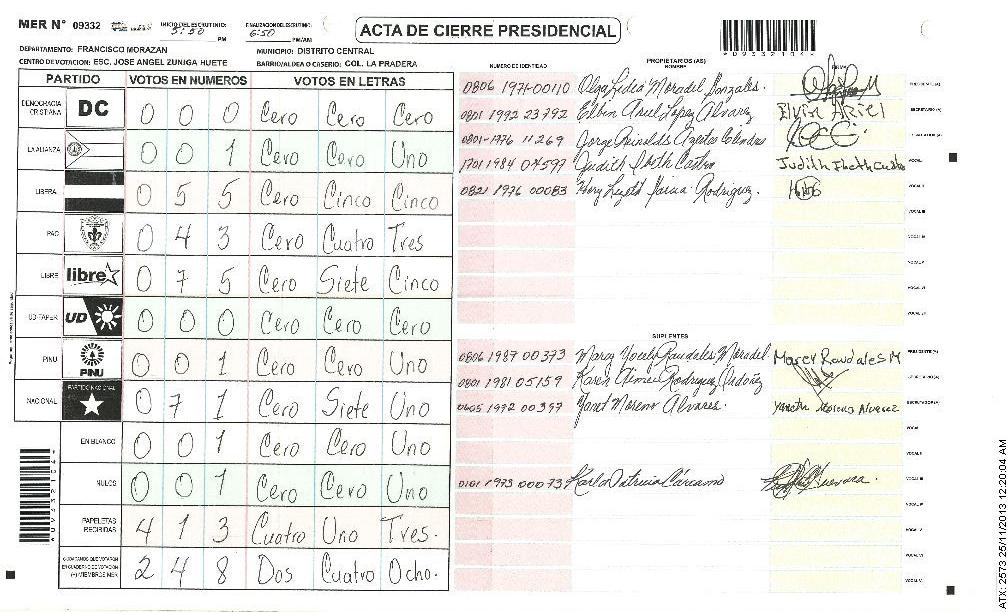 MER N° 09332 INICIO DEL ESCRUTINIO: 5:50 PM FINALIZACION DEL ESCRUTINIO: 6:50 PM/AM ACTA DE CIERRE PRESIDENCIAL
DEPARTAMENTO: FRANCISCO MORAZAN MUNICIPIO: DISTRITO CENTRAL
CENTRO DE VOTACION: ESC. JOSE ANGEL ZUNIGA HUETE BARRIO/ALDEA O CASERIO: COL. LA PRADERA
PARTIDO VOTOS EN NUMEROS VOTOS EN LETRAS
DEMOCRACIA CRISTIANA DC 0 0 0 Cero Cero Cero
LA ALIANZA 0 0 1 Cero Cero Uno
LIBERA 0 5 5 Cero Cinco Cinco
PAC 0 4 3 Cero Cuatro Tres
LIBRE libre 0 7 5 Cero Siete Cinco
UD-FAPER UD 0 0 0 Cero Cero Cero
PINU PINU 0 0 1 Cero Cero Uno
NACIONAL PARTIDO NACIONAL 0 7 1 Cero Siete Uno
EN BLANCO 0 0 1 Cero Cero Uno
NULOS 0 0 1 Cero Cero Uno
PAPELETAS RECIBIDAS 4 1 3 Cuatro Uno Tres.
CIUDADANOS QUE VOTARON EN CUADERNO DE VOTACION (+) MIEMBROS MER 2 4 8 Dos Cuatro Ocho.
NUMERO DE IDENTIDAD PROPIETARIOS (AS) NOMBRE FIRMA
0806 1971-00110 Olga Lidia Moradel Gonzales. PRESIDENTE (A)
0801 1992 23792 Elbin Ariel Lopez Alvarez Elvin Ariel SECRETARIO (A)
0801-1776 11269 Jorge
1701 1984 04597 Judith Ibeth Castro Judith Ibeth Castro VOCAL I
0821 1976 00083 Rodriguez. VOCAL II
VOCAL III
VOCAL IV
VOCAL V
VOCAL VI
VOCAL VII
SUPLENTES
0806 1987 00373 Marcy Yocely Raudales Moradel Marcy Raudales M PRESIDENTE (A)
0801 1981 05159 Karen Aimee Rodriguez Ordoñez SECRETARIO (A)
0605 1992 00397 Yanet Moreno Alvares. Moreno Alvarez ESCRUTADOR (A)
VOCAL I
VOCAL II
0101 1973 00073 Karla Patricia Cárcamo VOCAL III
VOCAL IV
VOCAL V
VOCAL VI
ATX: 2573 25/11/2013 12:20:04 AM